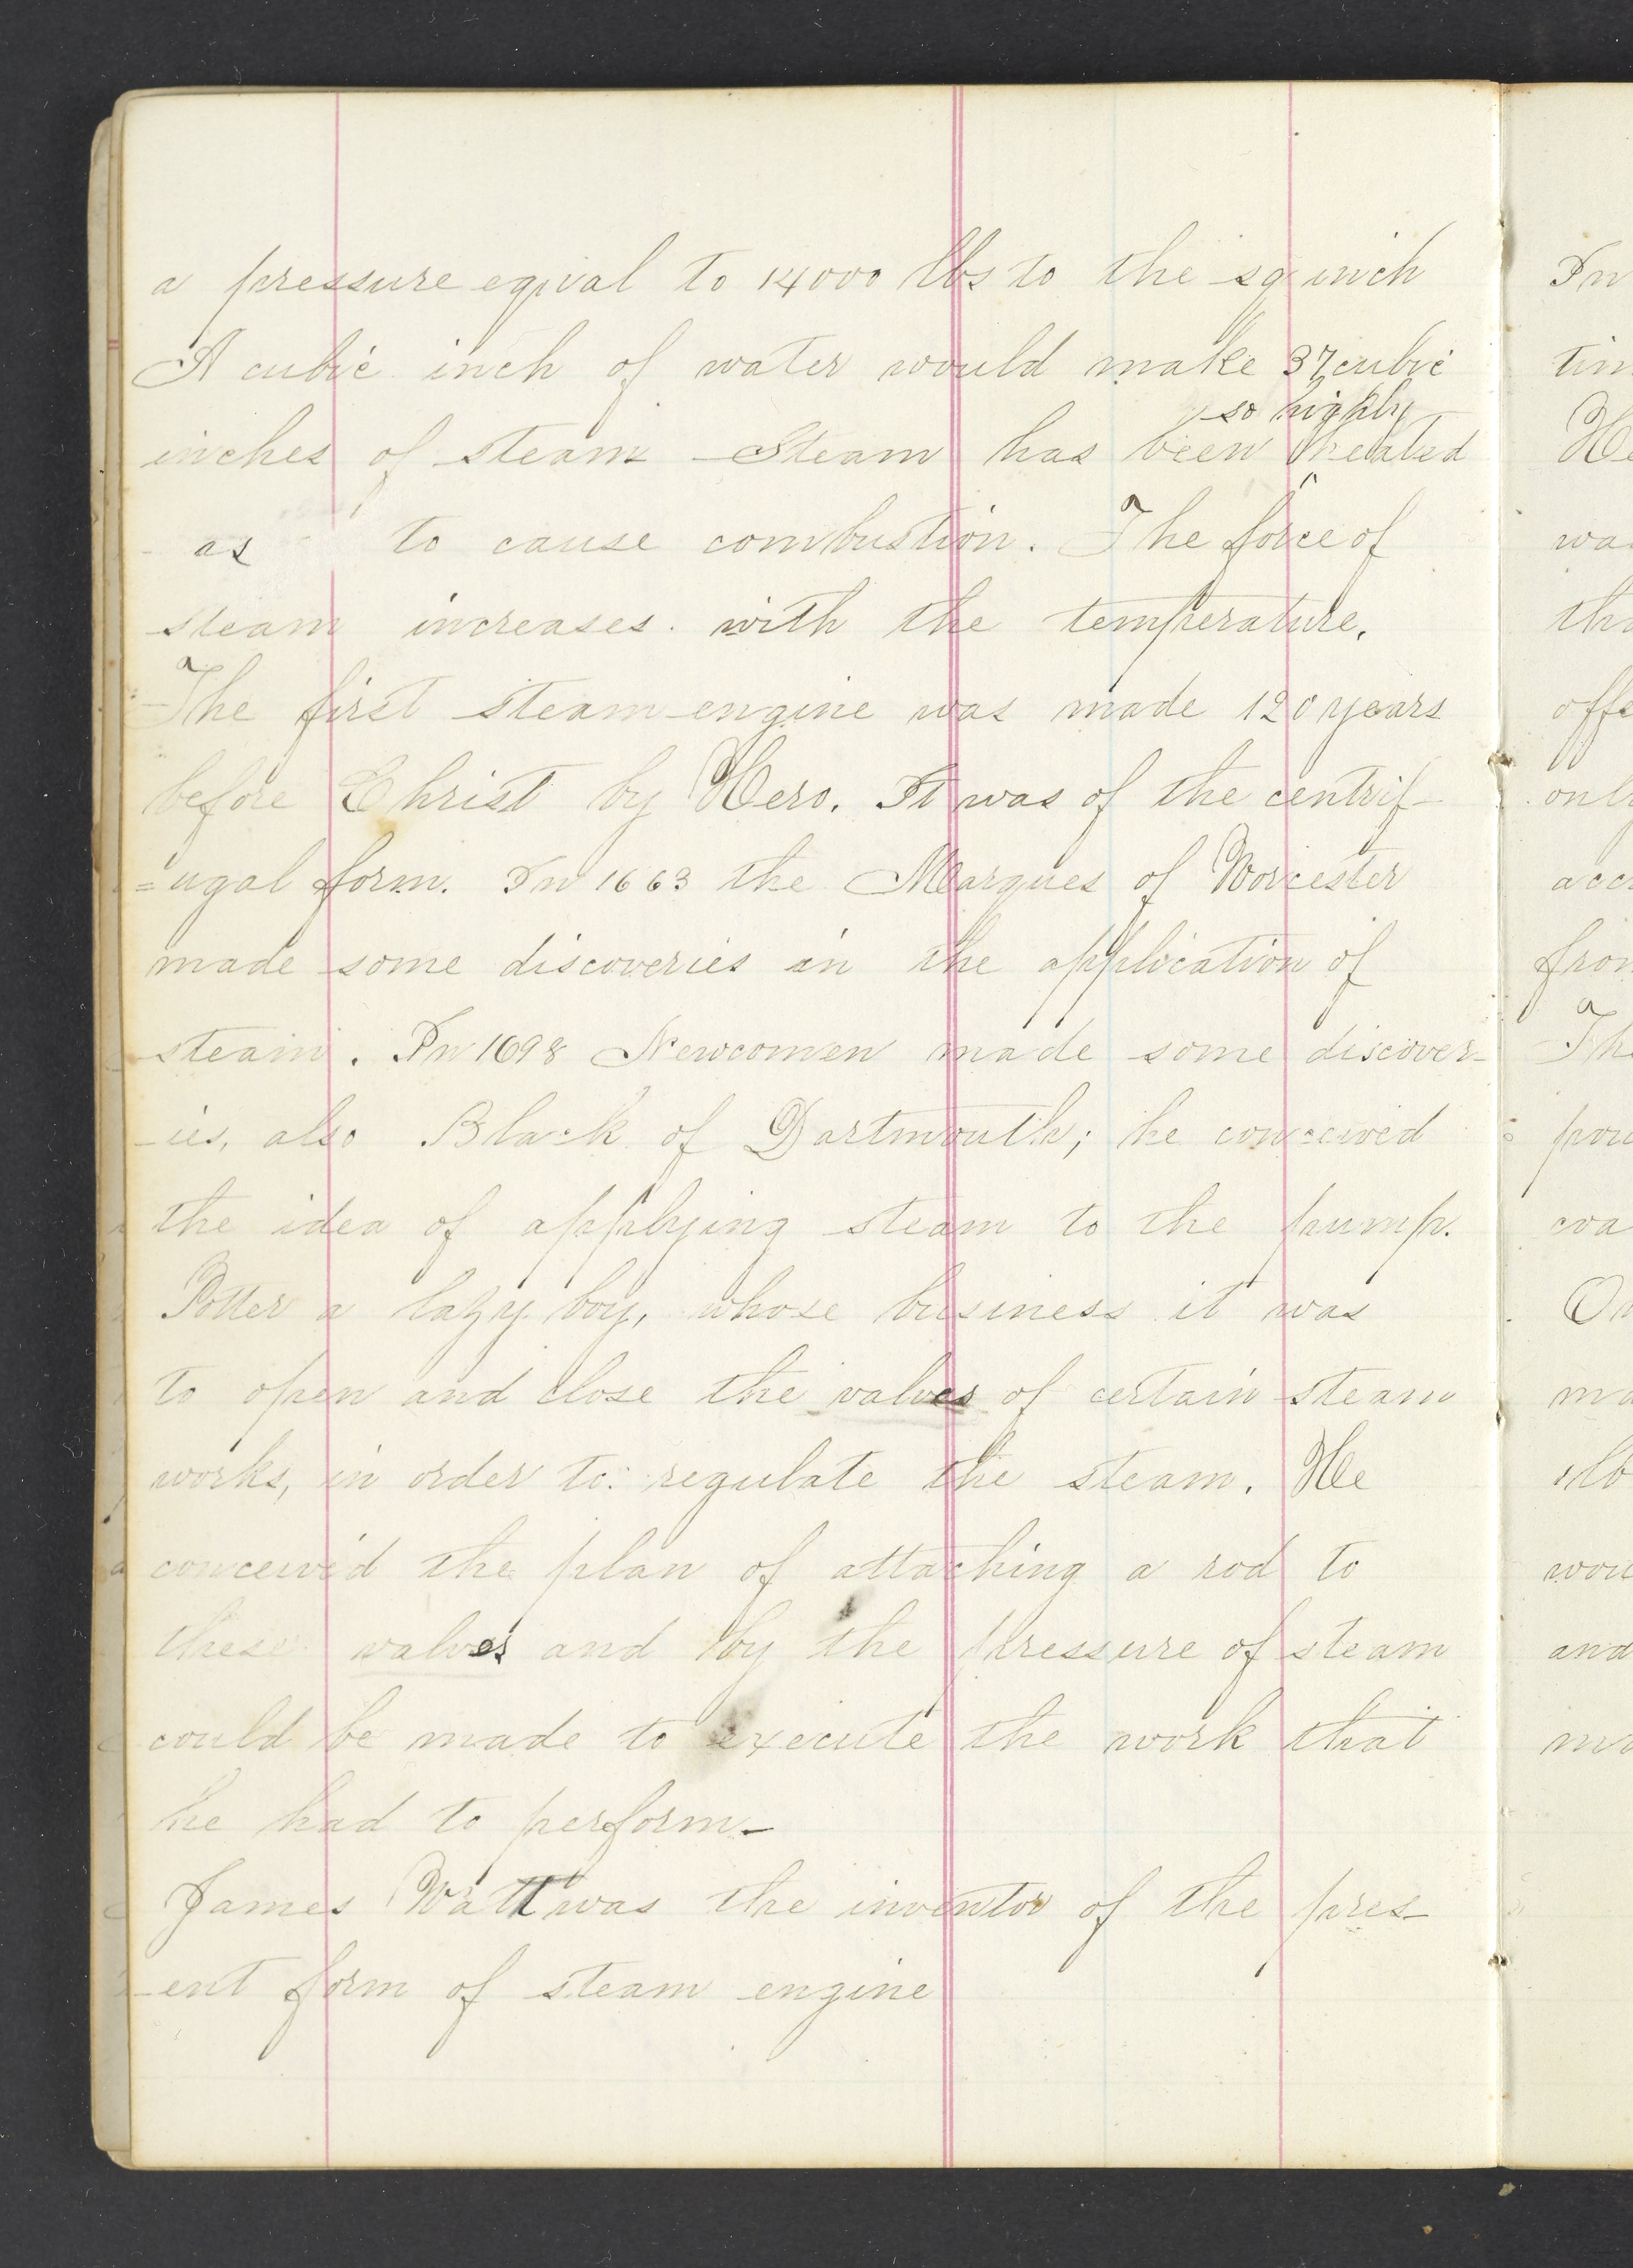 a pressure eqival to 14000 lbs to the sq inch
A cubic inch of water would make 37 cubic
so highly
inches of steam Steam has been ^ heated
as to cause combustion. The force of
steam increases with the temperature.
The first steam engine was made 120 years
before Christ by Hero. It was of the centrif-
=ugal form. In 1663 the Marques of Worcester
made some discoveries in the application of
steam. In 1698 Newcomen made some discover-
-ies, also Black of Dartmouth; he conceived
the idea of applying steam to the pump.
Potter a lazy boy, whose business it was
to open and close the valves of certain steam
works, in order to regulate the steam. He
conceived the plan of attaching a rod to
these valves and by the pressure of steam
could be made to execute the work that
he had to perform-
James Watt was the inventor of the pres-
-ent form of steam engine
In
tim
He
wa
the
offe
onl
acc
from
The
pow
Th
mo
wou
and